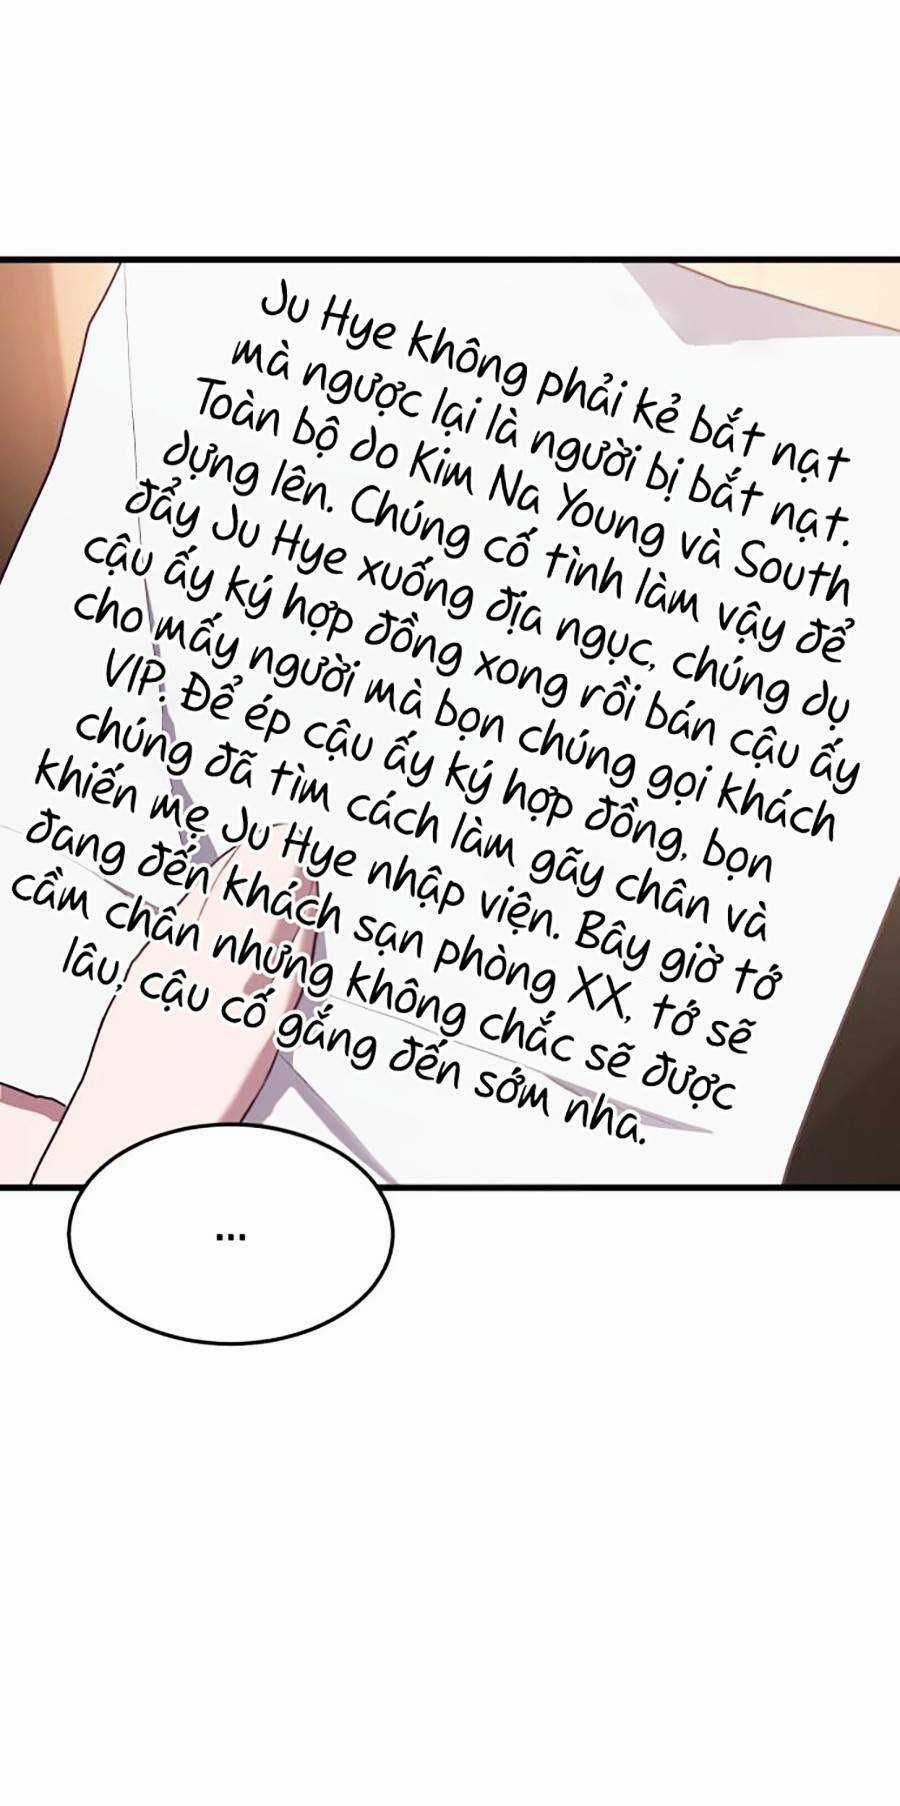 Ju Hye không phải kẻ bắt nạt
mà ngược lại là người bị bắt nạt.
Toàn bộ do Kim Na Young và South
dựng lên. Chúng cố tình làm vậy để
đẩy Ju Hye xuống địa ngục, chúng dụ
cậu ấy ký hợp đồng xong rồi bán cậu ấy
cho mấy người mà bọn chúng gọi khách
VIP. Để ép cậu ấy ký hợp đồng, bọn
chúng đã tìm cách làm gãy chân và
khiến mẹ Ju Hye nhập viện. Bây giờ tớ
đang đến khách sạn phòng XX, tớ sẽ
cầm chân nhưng không chắc sẽ được
lâu, cậu cố gắng đến sớm nha.
...